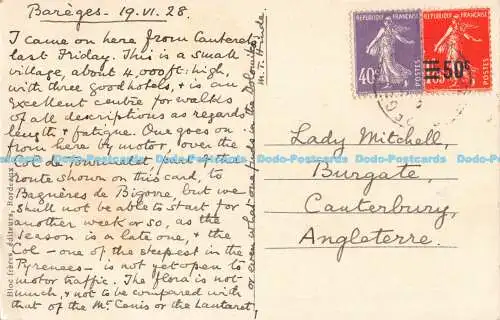 Barèges - 19.VI.28.
I came on here from Cauterets
last Friday. This is a small
village, about 4,000 ft: high,
with three good hotels, & is an
excellent centre for walks
of all descriptions as regards
length & fatigue. One goes on
from here by motor, over the
Col de Tourmalet part of the
route shown on this card, to
Bagnères de Bigorre, but we
shall not be able to start for
another week or so, as the
season is a late one, & the
Col - one of the steepest in the
Pyrenees - is not yet open to
motor traffic. The flora is not
much, & not to be compared with
that of the Mt. Cenis or the Lautaret,
or even what one finds in the Dolomites.
Bloc frères, éditeurs, Bordeaux
REPUBLIQUE FRANÇAISE
40c
POSTES
REPUBLIQUE FRANÇAISE
50c
POSTES
Lady Mitchell,
Burgate,
Canterbury,
Angleterre.
Dodo-Postcards Dodo-Postcards Dodo-Postcards Dodo-Postcards